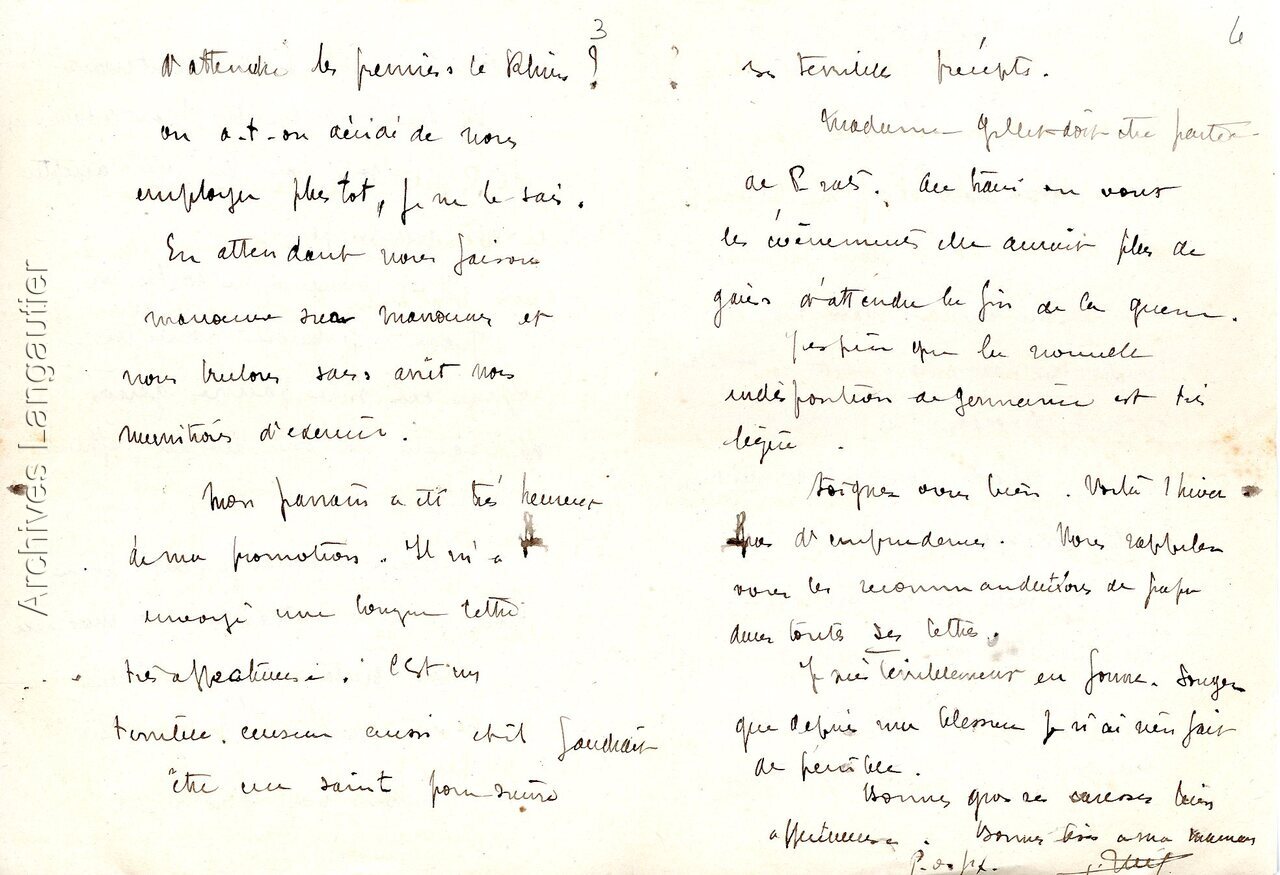 3
d'attendre les premiers le Rhin ?
ou a-t-on décidé de nous
employer plus tôt, je ne le sais.
En attendant nous faisons
manoeuvre sur manoeuvres et
nous brulons sans arrêt nos
munitions d'exercice.
Mon parrain a été très heureux
de ma promotion. Il m'a
envoyé une longue lettre
très affectueuse. C'est un
terrible censeur aussi et il faudrait
être un saint pour suivre
6
ses terribles préceptes.
Madame Gillet doit être partie
de Prats. Au train où vont
les événements elle aurait plus de
gaies d'attendre la fin de la guerre.
J'espère que la nouvelle
indisposition de Germaine est très
légère.
Soignez vous bien. Voilà l'hiver
pas d'imprudences. Vous rappelez
vous les recommandations de papa
dans toutes ses lettres.
Je suis terriblement en forme. Songez
que depuis ma blessure je n'ai rien fait
de pénible.
Bonnes grosses caresses bien
affectueuses. Bonnes bises à ma maman
Archives Langautier